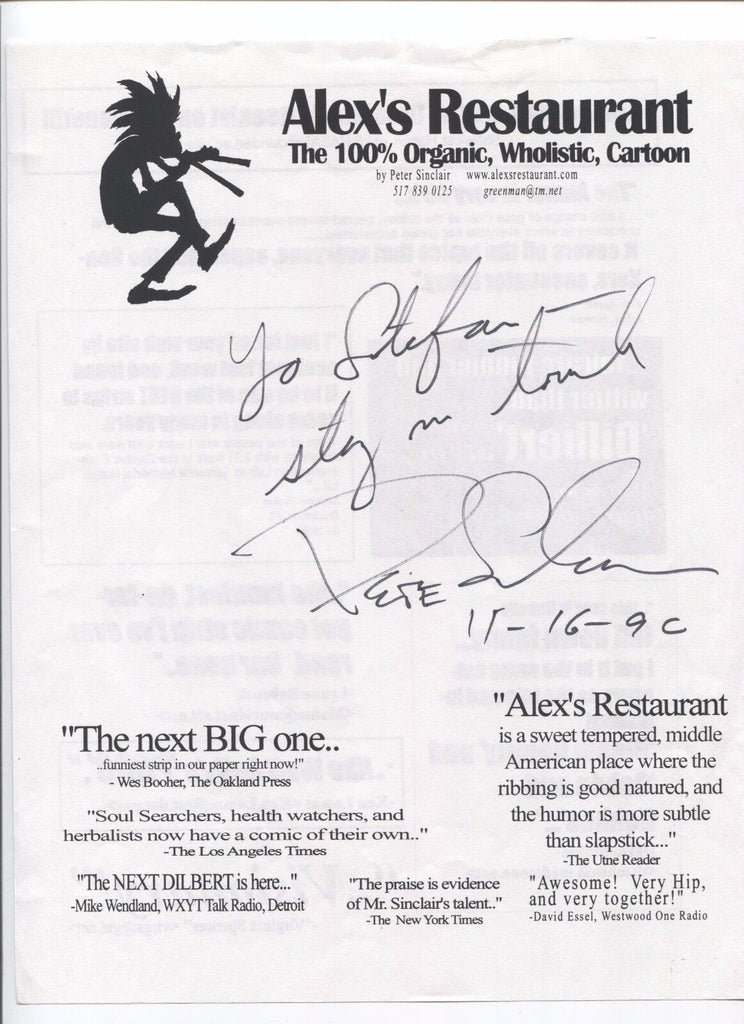 Alex's Restaurant
The 100% Organic, Wholistic, Cartoon
by Peter Sinclair www.alexsrestaurant.com
517 839 0125 greenman@tm.net
Yo Stefan -
stay in touch
PETE
"The next BIG one..
..funniest strip in our paper right now!"
- Wes Booher, The Oakland Press
"Soul Searchers, health watchers, and
herbalists now have a comic of their own.."
-The Los Angeles Times
"The NEXT DILBERT is here..."
-Mike Wendland, WXYT Talk Radio, Detroit
"The praise is evidence
of Mr. Sinclair's talent.."
-The New York Times
"Alex's Restaurant
is a sweet tempered, middle
American place where the
ribbing is good natured, and
the humor is more subtle
than slapstick..."
-The Utne Reader
"Awesome! Very Hip,
and very together!"
-David Essel, Westwood One Radio